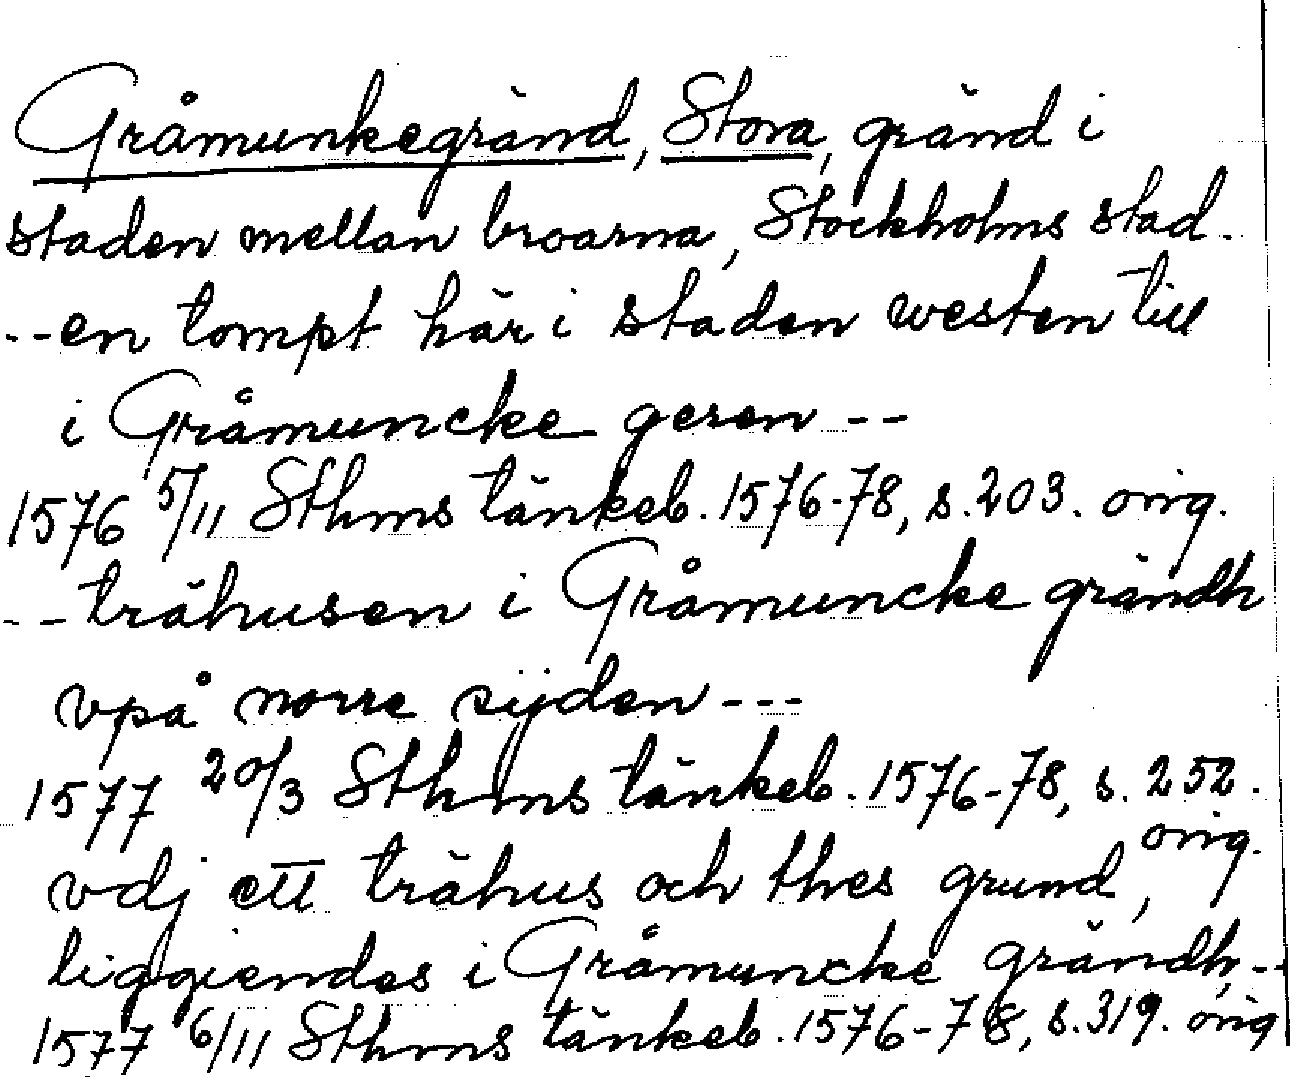 Gråmunkegränd, Stora, gränd i
staden mellan broarna, Stockholms stad.
--en tompt här i staden westen till
i Gråmuncke geren --
1576 5/11 Sthms tänkeb. 1576-78, s. 203. orig.
--trähusen i Gråmuncke grändh
vpå norre sijden ---
1577 20/3 Sthms tänkeb. 1576-78, s. 252.
orig.
vdj ett trähus och thes grund,
liggiendes i Gråmuncke grändh, --
1577 6/11 Sthms tänkeb. 1576-78, s. 319. orig